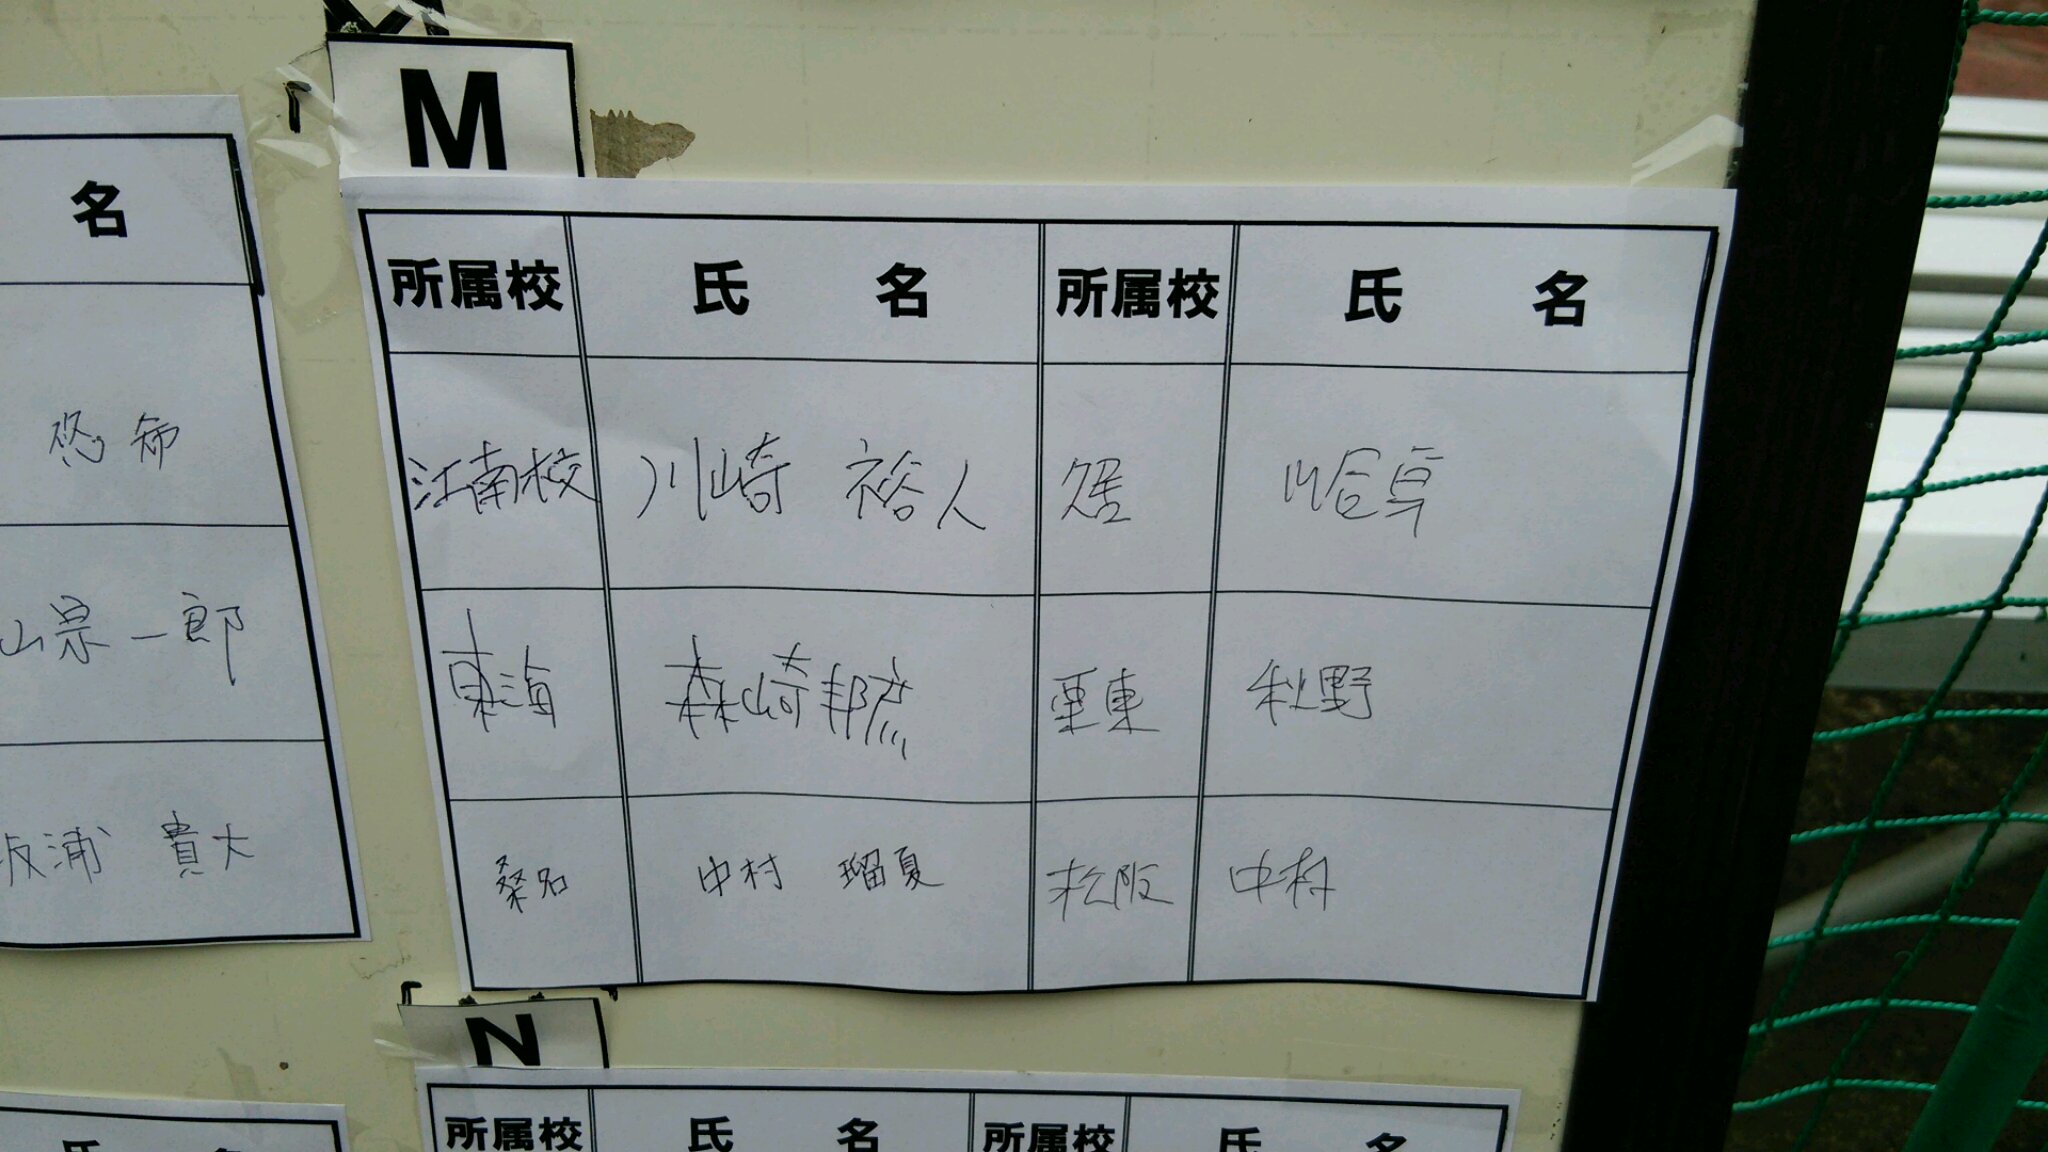 M
名
所属校 氏 名 所属校 氏 名
江南校 川崎 裕人 久居
東海 森崎 邦 栗東 秋野
桑名 中村 瑠夏 松阪 中村
悠
山 一郎
浦 貴大
N
所属校 氏 名 所属校 氏 名
氏 名